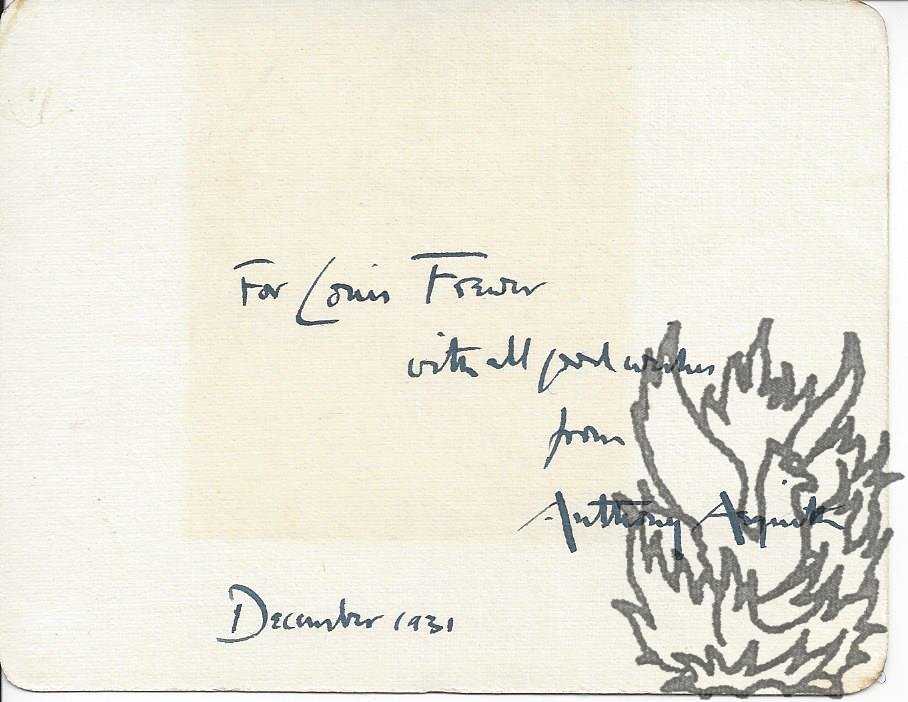 For Louis Frewer
with all good wishes
from
Anthony Asquith
December 1931